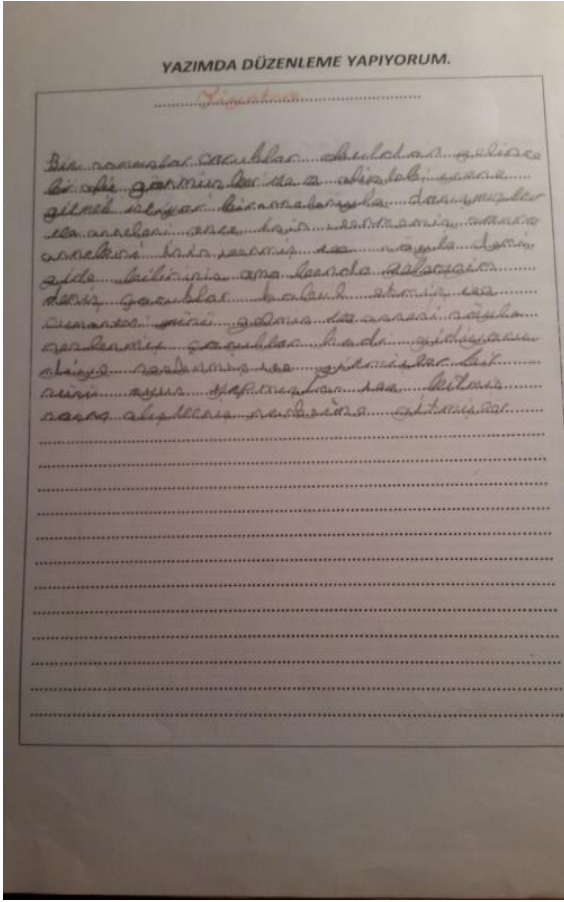 YAZIMDA DÜZENLEME YAPIYORUM.
Bir çocuklar okuldan gelirke
bir görmüşler ve o
gitmek istiyor bir anneleriyle danışmışlar
ve anneleri önce izin vermemiş sonra
anneleri izin vermiş ve şöyle demiş
gide bilirsiniz ama bende
demiş çocuklar kabul etmiş ve
cumartesi günü gelmiş ve annesi şöyle
seslenmiş çocuklar hadi gidiyoruz
diye seslenmiş ve gitmişler bir
sürü oyun yapmışlar ve bitmiş
sonra alışveriş merkezine gitmişler